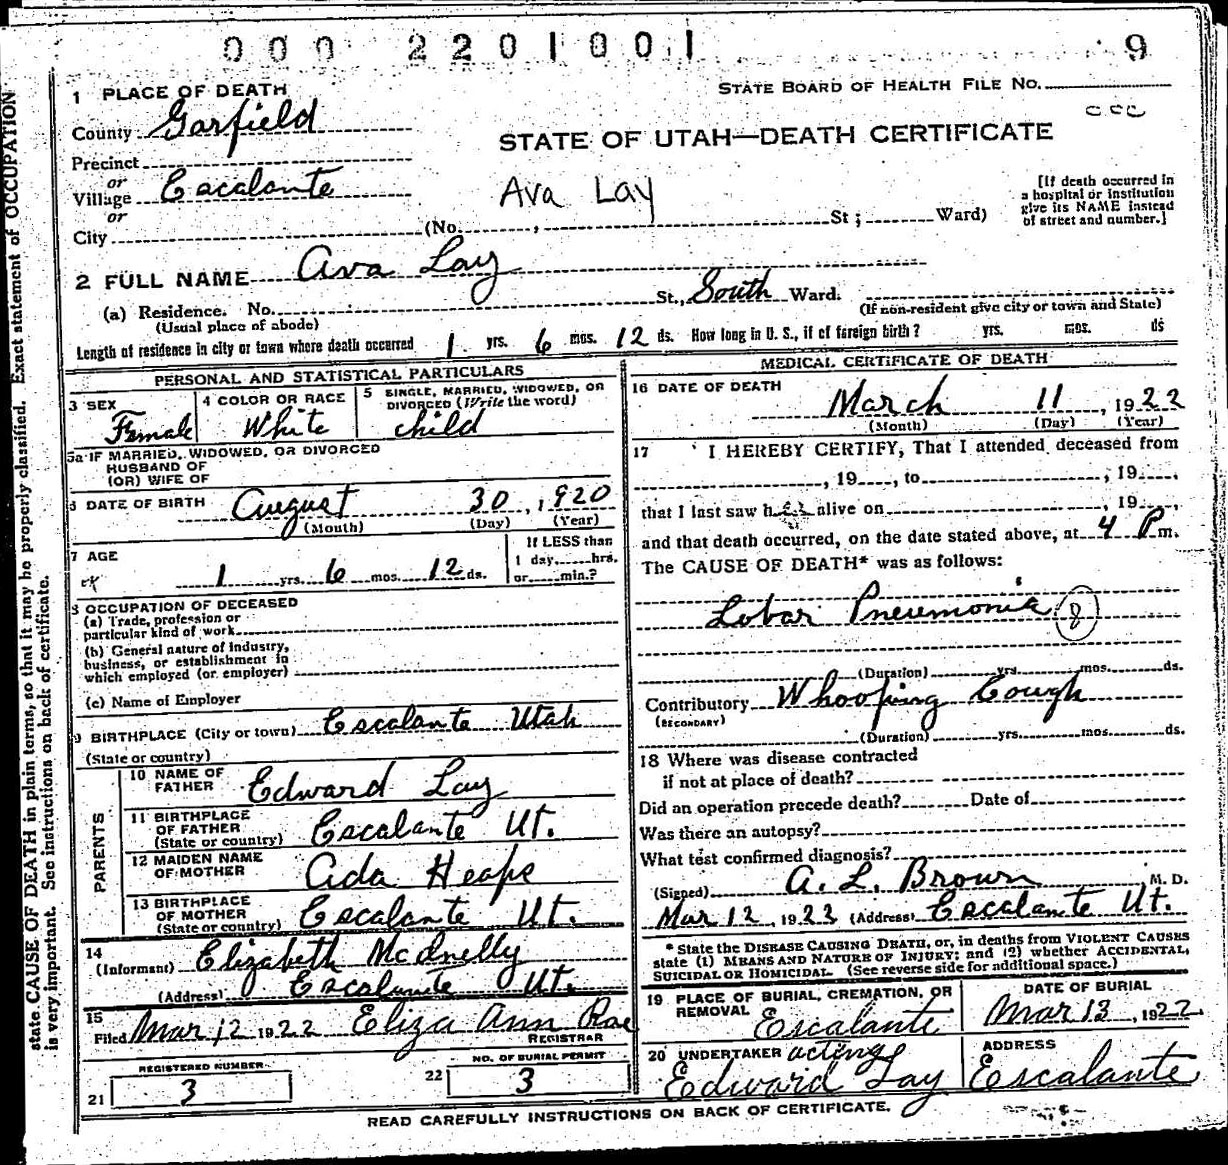 000 2201001 9
1 PLACE OF DEATH
STATE BOARD OF HEALTH FILE NO.
County Garfield
STATE OF UTAH—DEATH CERTIFICATE
Precinct
or
Village Escalante
Ava Lay
[If death occurred in a hospital or institution give its NAME instead of street and number.]
or
City (No. , St; Ward)
2 FULL NAME Ava Lay
(a) Residence. No. St., South Ward.
(Usual place of abode) (If non-resident give city or town and State)
Length of residence in city or town where death occurred 1 yrs. 6 mos. 12 ds. How long in U. S., if of foreign birth? yrs. mos. ds
PERSONAL AND STATISTICAL PARTICULARS
3 SEX Female
4 COLOR OR RACE White
5 SINGLE, MARRIED, WIDOWED, OR DIVORCED (Write the word) child
5a IF MARRIED, WIDOWED, OR DIVORCED
HUSBAND OF
(OR) WIFE OF
6 DATE OF BIRTH August 30, 1920
(Month) (Day) (Year)
7 AGE 1 yrs. 6 mos. 12 ds.
If LESS than 1 day hrs. or min.?
8 OCCUPATION OF DECEASED
(a) Trade, profession or
particular kind of work
(b) General nature of Industry,
business, or establishment in
which employed (or employer)
(c) Name of Employer
9 BIRTHPLACE (City or town) Escalante Utah
(State or country)
PARENTS
10 NAME OF FATHER Edward Lay
11 BIRTHPLACE OF FATHER (State or country) Escalante Ut.
12 MAIDEN NAME OF MOTHER Ada Heaps
13 BIRTHPLACE OF MOTHER (State or country) Escalante Ut.
14 (Informant) Elizabeth McInelly
(Address) Escalante Ut.
15 Filed Mar 12 1922 Eliza Ann Rae
REGISTRAR
REGISTERED NUMBER
21 3
NO. OF BURIAL PERMIT
22 3
MEDICAL CERTIFICATE OF DEATH
16 DATE OF DEATH
March 11, 1922
(Month) (Day) (Year)
17 I HEREBY CERTIFY, That I attended deceased from
, 19 , to , 19 ,
that I last saw her alive on , 19 ,
and that death occurred, on the date stated above, at 4 P m.
The CAUSE OF DEATH* was as follows:
Lobar Pneumonia 8
(Duration) yrs. mos. ds.
Contributory Whooping Cough
(SECONDARY)
(Duration) yrs. mos. ds.
18 Where was disease contracted
if not at place of death?
Did an operation precede death? Date of
Was there an autopsy?
What test confirmed diagnosis?
(Signed) A. L. Brown M. D.
Mar 12, 1922 (Address) Escalante Ut.
* State the DISEASE CAUSING DEATH, or, in deaths from VIOLENT CAUSES
state (1) MEANS AND NATURE OF INJURY; and (2) whether ACCIDENTAL,
SUICIDAL OR HOMICIDAL. (See reverse side for additional space.)
19 PLACE OF BURIAL, CREMATION, OR REMOVAL Escalante
DATE OF BURIAL
Mar 13, 1922
20 UNDERTAKER acting Edward Lay
ADDRESS
Escalante
READ CAREFULLY INSTRUCTIONS ON BACK OF CERTIFICATE.
state CAUSE OF DEATH in plain terms, so that it may be properly classified. Exact statement of OCCUPATION
is very important. See instructions on back of certificate.